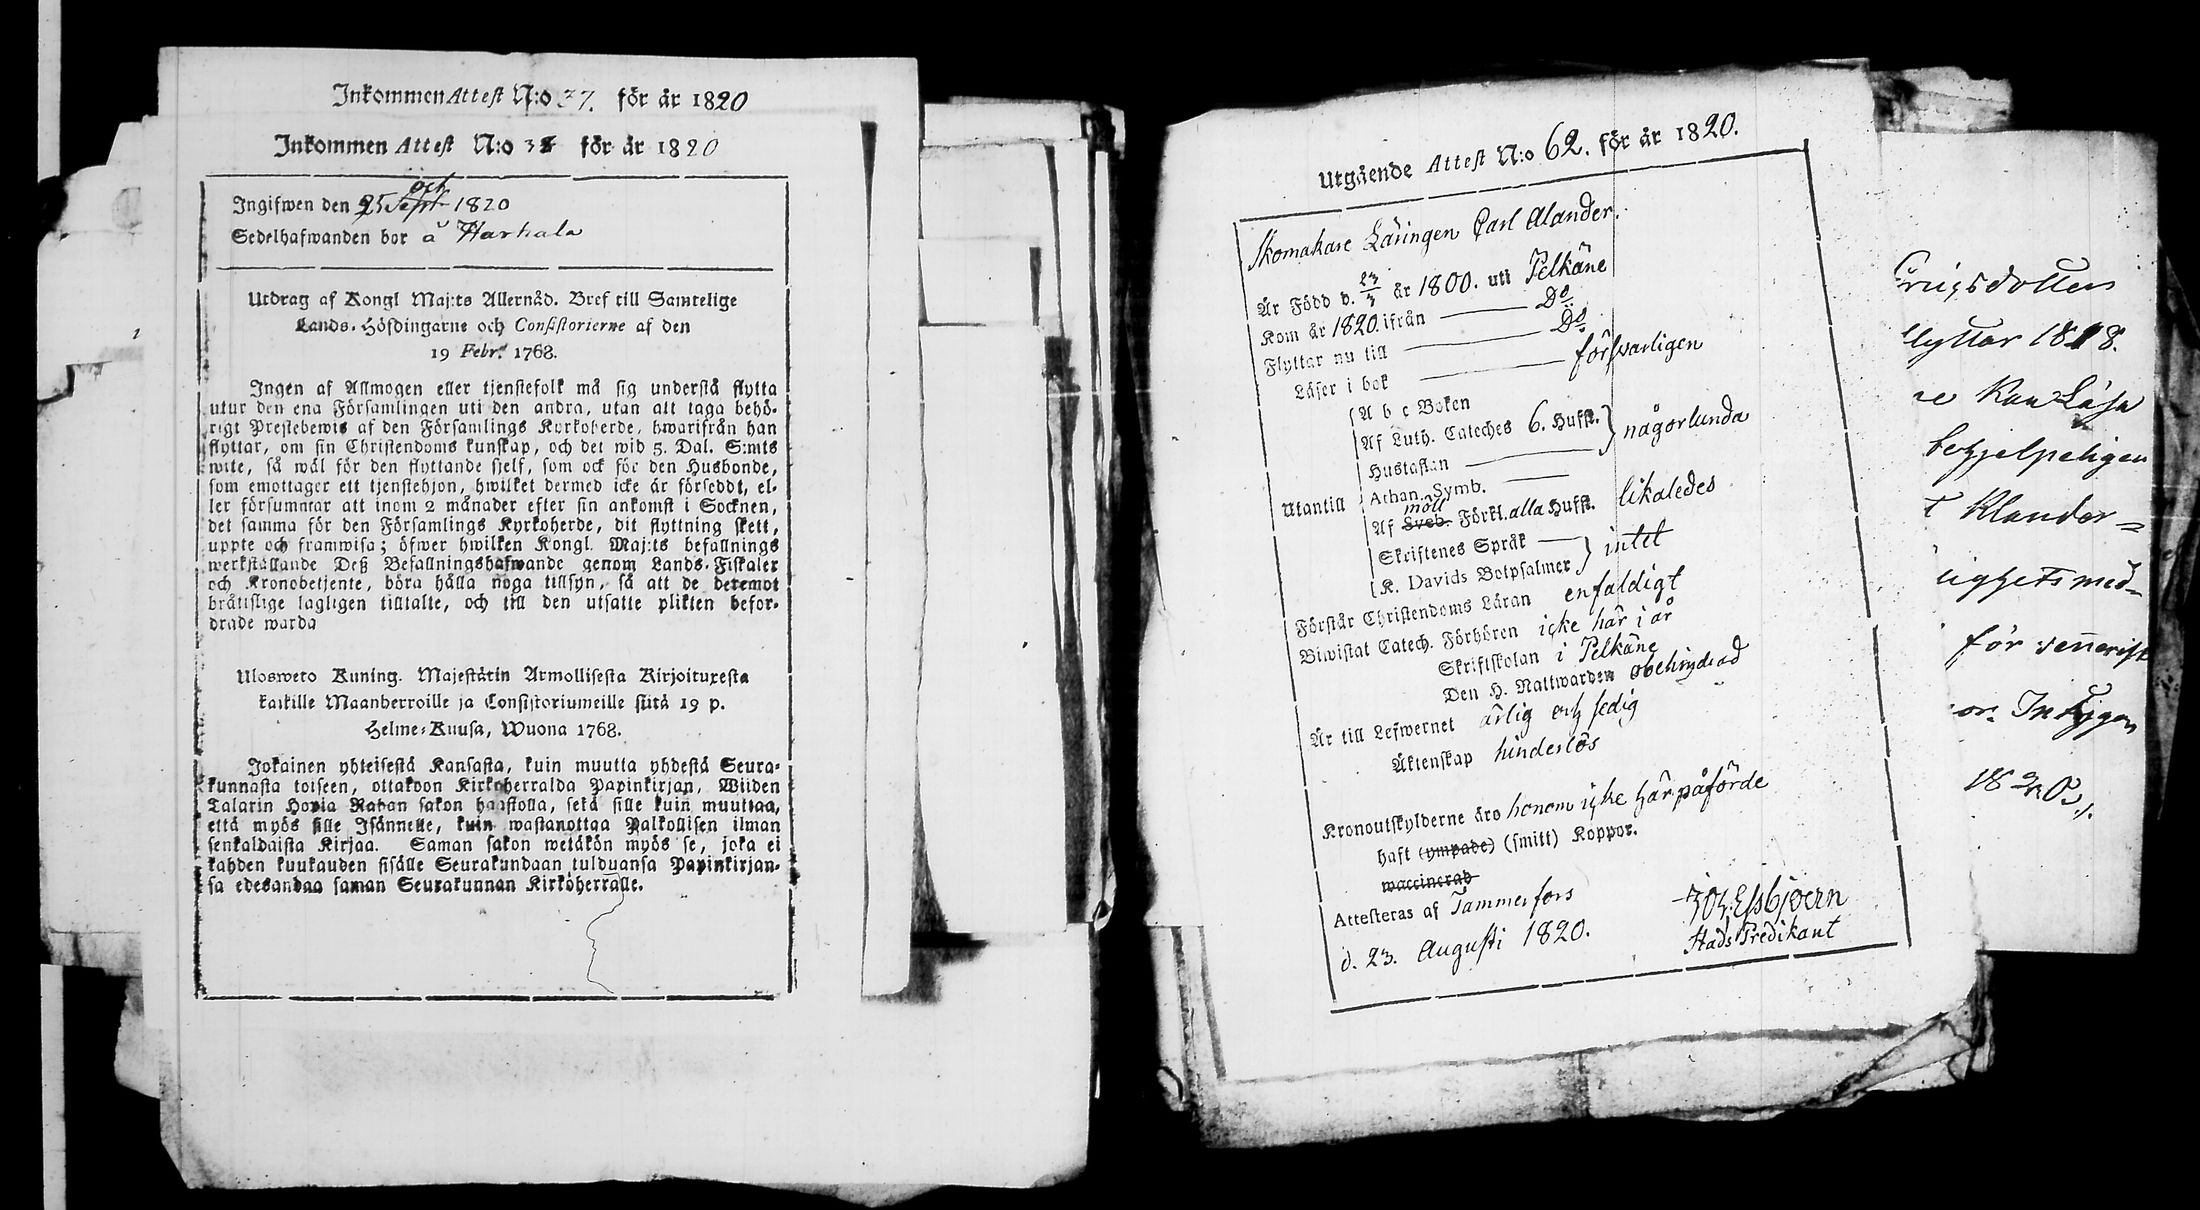 Inkommen Attest N:o 37. för år 1820
Inkommen Attest N:o 38 för år 1820
och
Ingifwen den 25 Sept 1820
Sedelhafwanden bor å Harhala
Utdrag af Kongl Maj:ts Allernåd. Bref till Samtelige
Lands-Höfdingarne och Consistorierne af den
19 Febr. 1768.
Ingen af Allmogen eller tjenstefolk må sig understå flytta
utur den ena Församlingen uti den andra, utan att taga behö-
rigt Prestebewis af den Församlings Kyrkoherde, hwarifrån han
flyttar, om sin Christendoms kunskap, och det wid 5. Dal. S:mts
wite, så wäl för den flyttande sjelf, som ock för den Husbonde,
som emottager ett tjenstehjon, hwilket dermed icke är försedt, el-
ler försummar att inom 2 månader efter sin ankomst i Socknen,
det samma för den Församlings Kyrkoherde, dit flyttning skett,
uppte och framwisa; öfwer hwilken Kongl. Maj:ts befallnings
werkställande Deß Befallningshafwande genom Lands-Fiskaler
och Kronobetjente, böra hålla noga tillsyn, så att de deremot
bråtislige lagligen tilltalte, och till den utsatte plikten befor-
drade warda
Ulosweto Kuning. Majestätin Armollisesta Kirjoituxesta
kaikille Maanherroille ja Consistoriumeille siitä 19 p.
Helme-Kuusa, Wuona 1768.
Jokainen yhteisestä Kansasta, kuin muutta yhdestä Seura-
kunnasta toiseen, ottakoon Kirkoherralda Papinkirjan, Wiiden
Talarin Hopia Rahan sakon haastolla, sekä sille kuin muuttaa,
että myös sille Isännelle, kuin wastanottaa Palkollisen ilman
senkaldaista Kirjaa. Saman sakon wetäkön myös se, joka ei
kahden kuukauden sisälle Seurakundaan tulduansa Papinkirjan-
sa edesandaa saman Seurakunnan Kirköherralle.
Utgående Attest N:o 62. för år 1820.
Skomakare Läringen Carl Alander.
Är Född d. 23/3 år 1800. uti Pelkäne
Kom år 1820. ifrån Do
Flyttar nu till Do
Läser i bok försvarligen
A b c Boken
Af Luth. Cateches 6. Hufst. någorlunda
Hustaflan
Utantill Athan. Symb.
möll
Af Sveb. Förkl. alla Hufst. likaledes
Skriftenes Språk intet
K. Davids Botpsalmer
Förstår Christendoms Läran enfaldigt
Biwistat Catech. Förhören icke här i år
Skriftskolan i Pelkäne
Den H. Nattwarden obehindrad
Är till Lefwernet ärlig och sedig
Äktenskap hinderlös
Kronoutskylderne äro honom icke här påförde
haft (ympade) (smitt) Koppor.
waccinerad
Attesteras af Tammerfors
d. 23. Augusti 1820.
Joh. Essbjoern
Stads Predikant
Ericsdotter
flyttar 1818.
ne Kan Läsa
behjelpeligen
Klander=
ighets med=
för
or. Intygar
1820